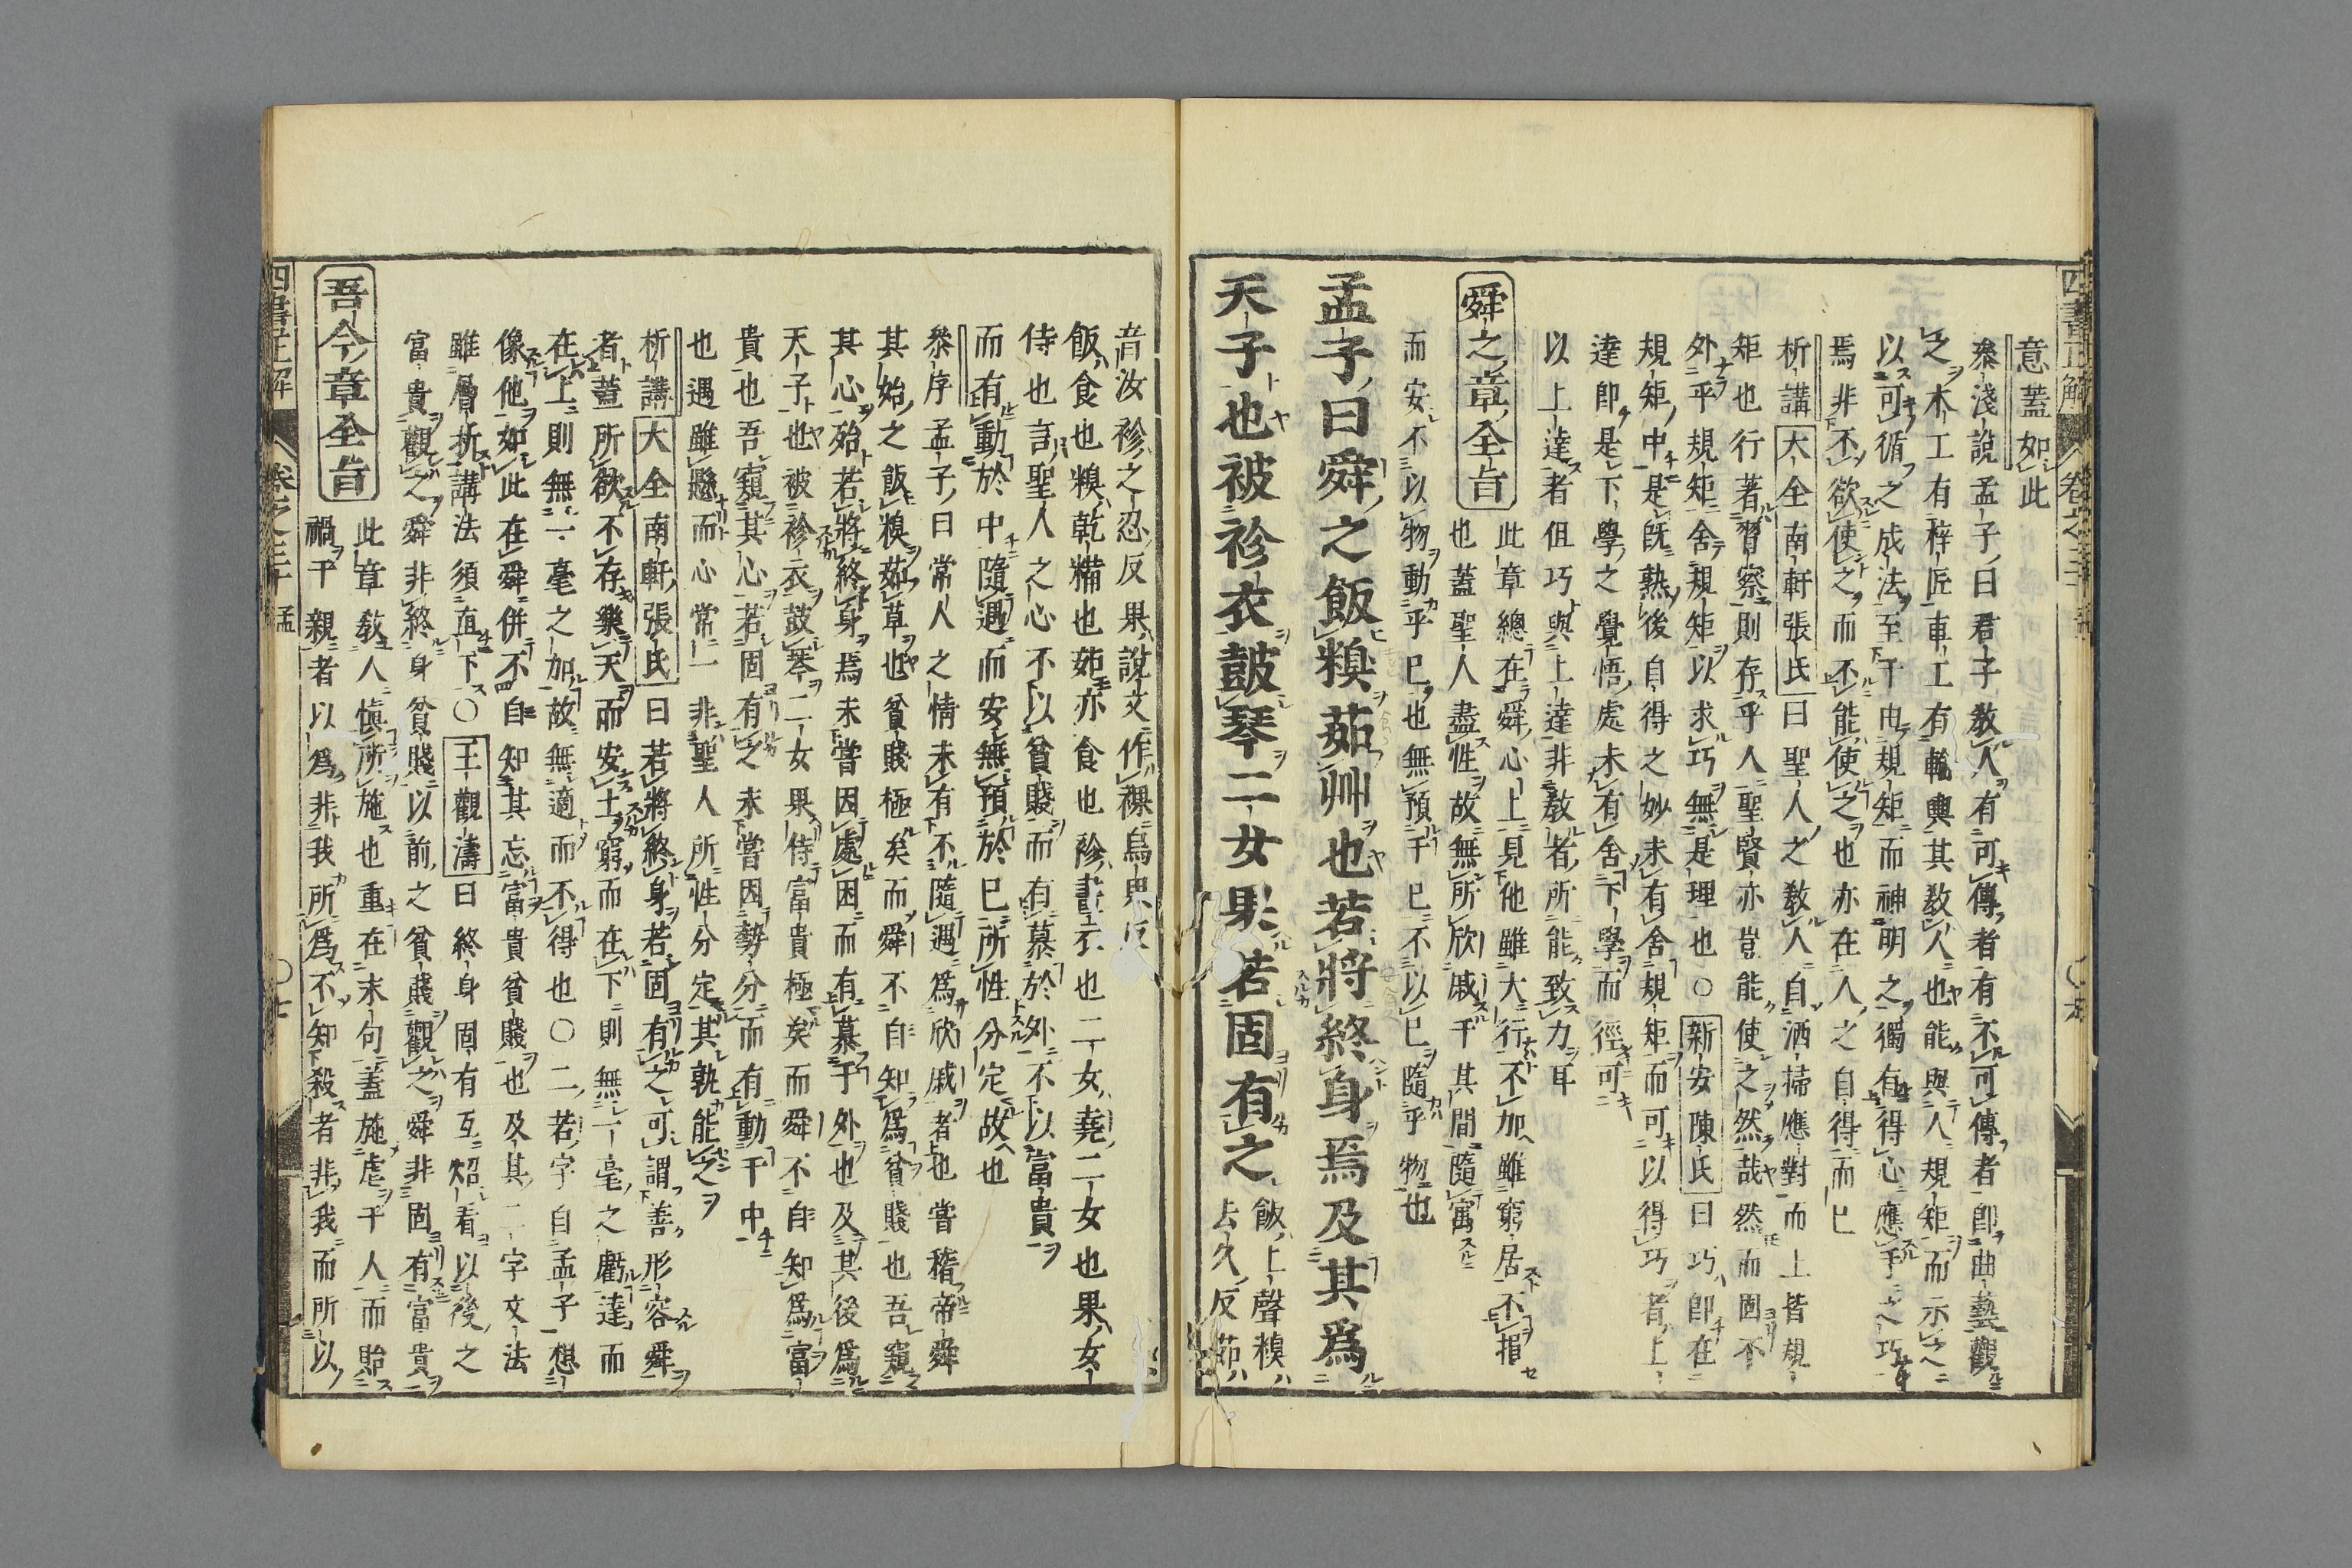 意蓋如此
參淺説孟子曰君子教人有可傳者有不可傳者即曲藝觀
之木工有梓匠車工有輪輿其教人也能與人規矩而示之
以可循之成法至于由規矩而神明之獨有得心應手之巧
焉非不欲使之而不能使之也亦在人之自得而已
析講大全南軒張氏曰聖人之教人自洒掃應對而上皆規
矩也行著習察則存乎人聖賢亦豈能使之然哉然而固不
外乎規矩舍規矩以求巧無是理也○新安陳氏曰巧即在
規矩中是既熟後自得之妙未有舍規矩而可以得巧者上
達即是下學之覺悟處未有舍下學而徑可
以上達者但巧與上達非教者所能致力耳
舜之章全旨
此章總在舜心上見他雖大行不加雖窮居不損
也蓋聖人盡性故無所欣戚于其間隨寓
而安不以物動乎已也無預于已不以已隨乎物也
孟子曰舜之飯糗茹艸也若將終身焉及其爲
天子也被袗衣鼓琴二女果若固有之
飯上聲糗
去久反茹
音汝袗之忍反果説文作䙴烏果反
飯食也糗乾糒也茹亦食也袗畫衣也二女堯二女也果女
侍也言聖人之心不以貧賤而有慕於外不以富貴
而有動於中隨遇而安無預於已所性分定故也
參序孟子曰常人之情未有不隨遇爲欣戚者也嘗稽帝舜
其始之飯糗茹草也貧賤極矣而舜不自知爲貧賤也吾窺
其心殆若將終身焉未嘗因處困而有慕于外也及其後爲
天子也被袗衣鼓琴二女果侍富貴極矣而舜不自知爲富
貴也吾窺其心若固有之未嘗因勢分而有動于中
也遇雖懸而心常一非聖人所性分定其孰能之
析講大全南軒張氏曰若將終身若固有之可謂善形容舜
者蓋所欲不存樂天而安土窮而在下則無一毫之虧達而
在上則無一毫之加故無適而不得也○二若字自孟子想
像他如此在舜併不自知其忘富貴貧賤也及其二字文法
雖層折講法須直下○王觀濤曰終身固有互炤看以後之
富貴觀之舜非終身貧賤以前之貧賤觀之舜非固有富貴
吾今章全旨
此章教人愼所施也重在末句蓋施虐于人而貽
禍于親者以爲非我所爲不知殺者非我而所以
四書正解
卷之三十
孟